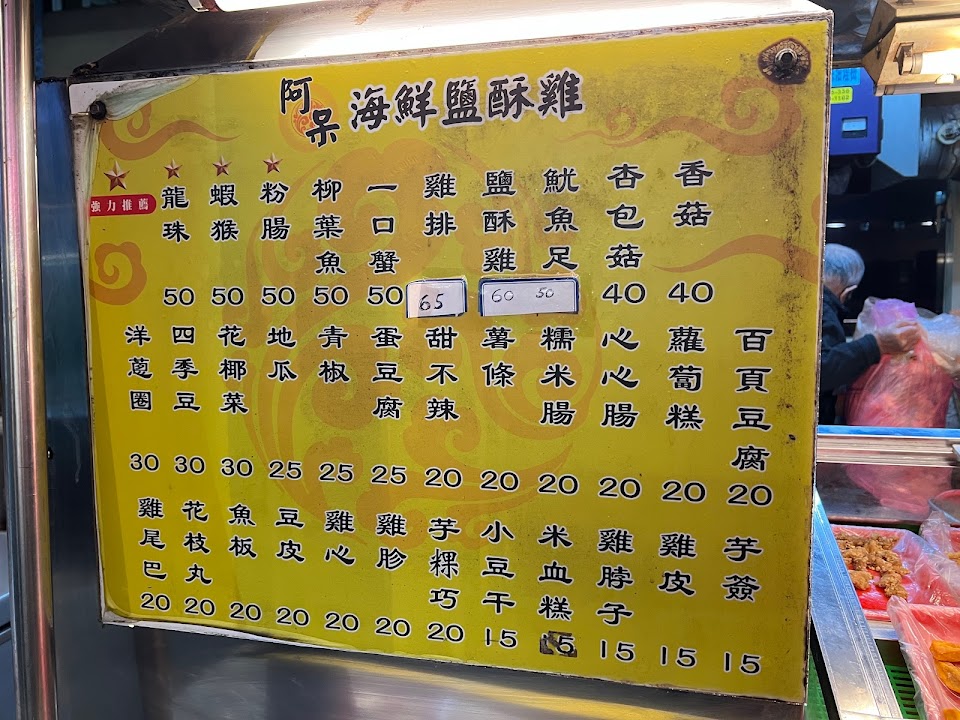 阿呆海鮮鹽酥雞
強力推薦
龍珠 50
蝦猴 50
粉腸 50
柳葉魚 50
一口蟹 50
雞排 65
鹽酥雞 60
魷魚足 50
杏包菇 40
香菇 40
洋蔥圈 30
四季豆 30
花椰菜 30
地瓜 25
青椒 25
蛋豆腐 25
甜不辣 20
薯條 20
糯米腸 20
心心腸 20
蘿蔔糕 20
百頁豆腐 20
雞尾巴 20
花枝丸 20
魚板 20
豆皮 20
雞心 20
雞胗 20
芋粿巧 20
小豆干 15
米血糕 15
雞脖子 15
雞皮 15
芋簽 15